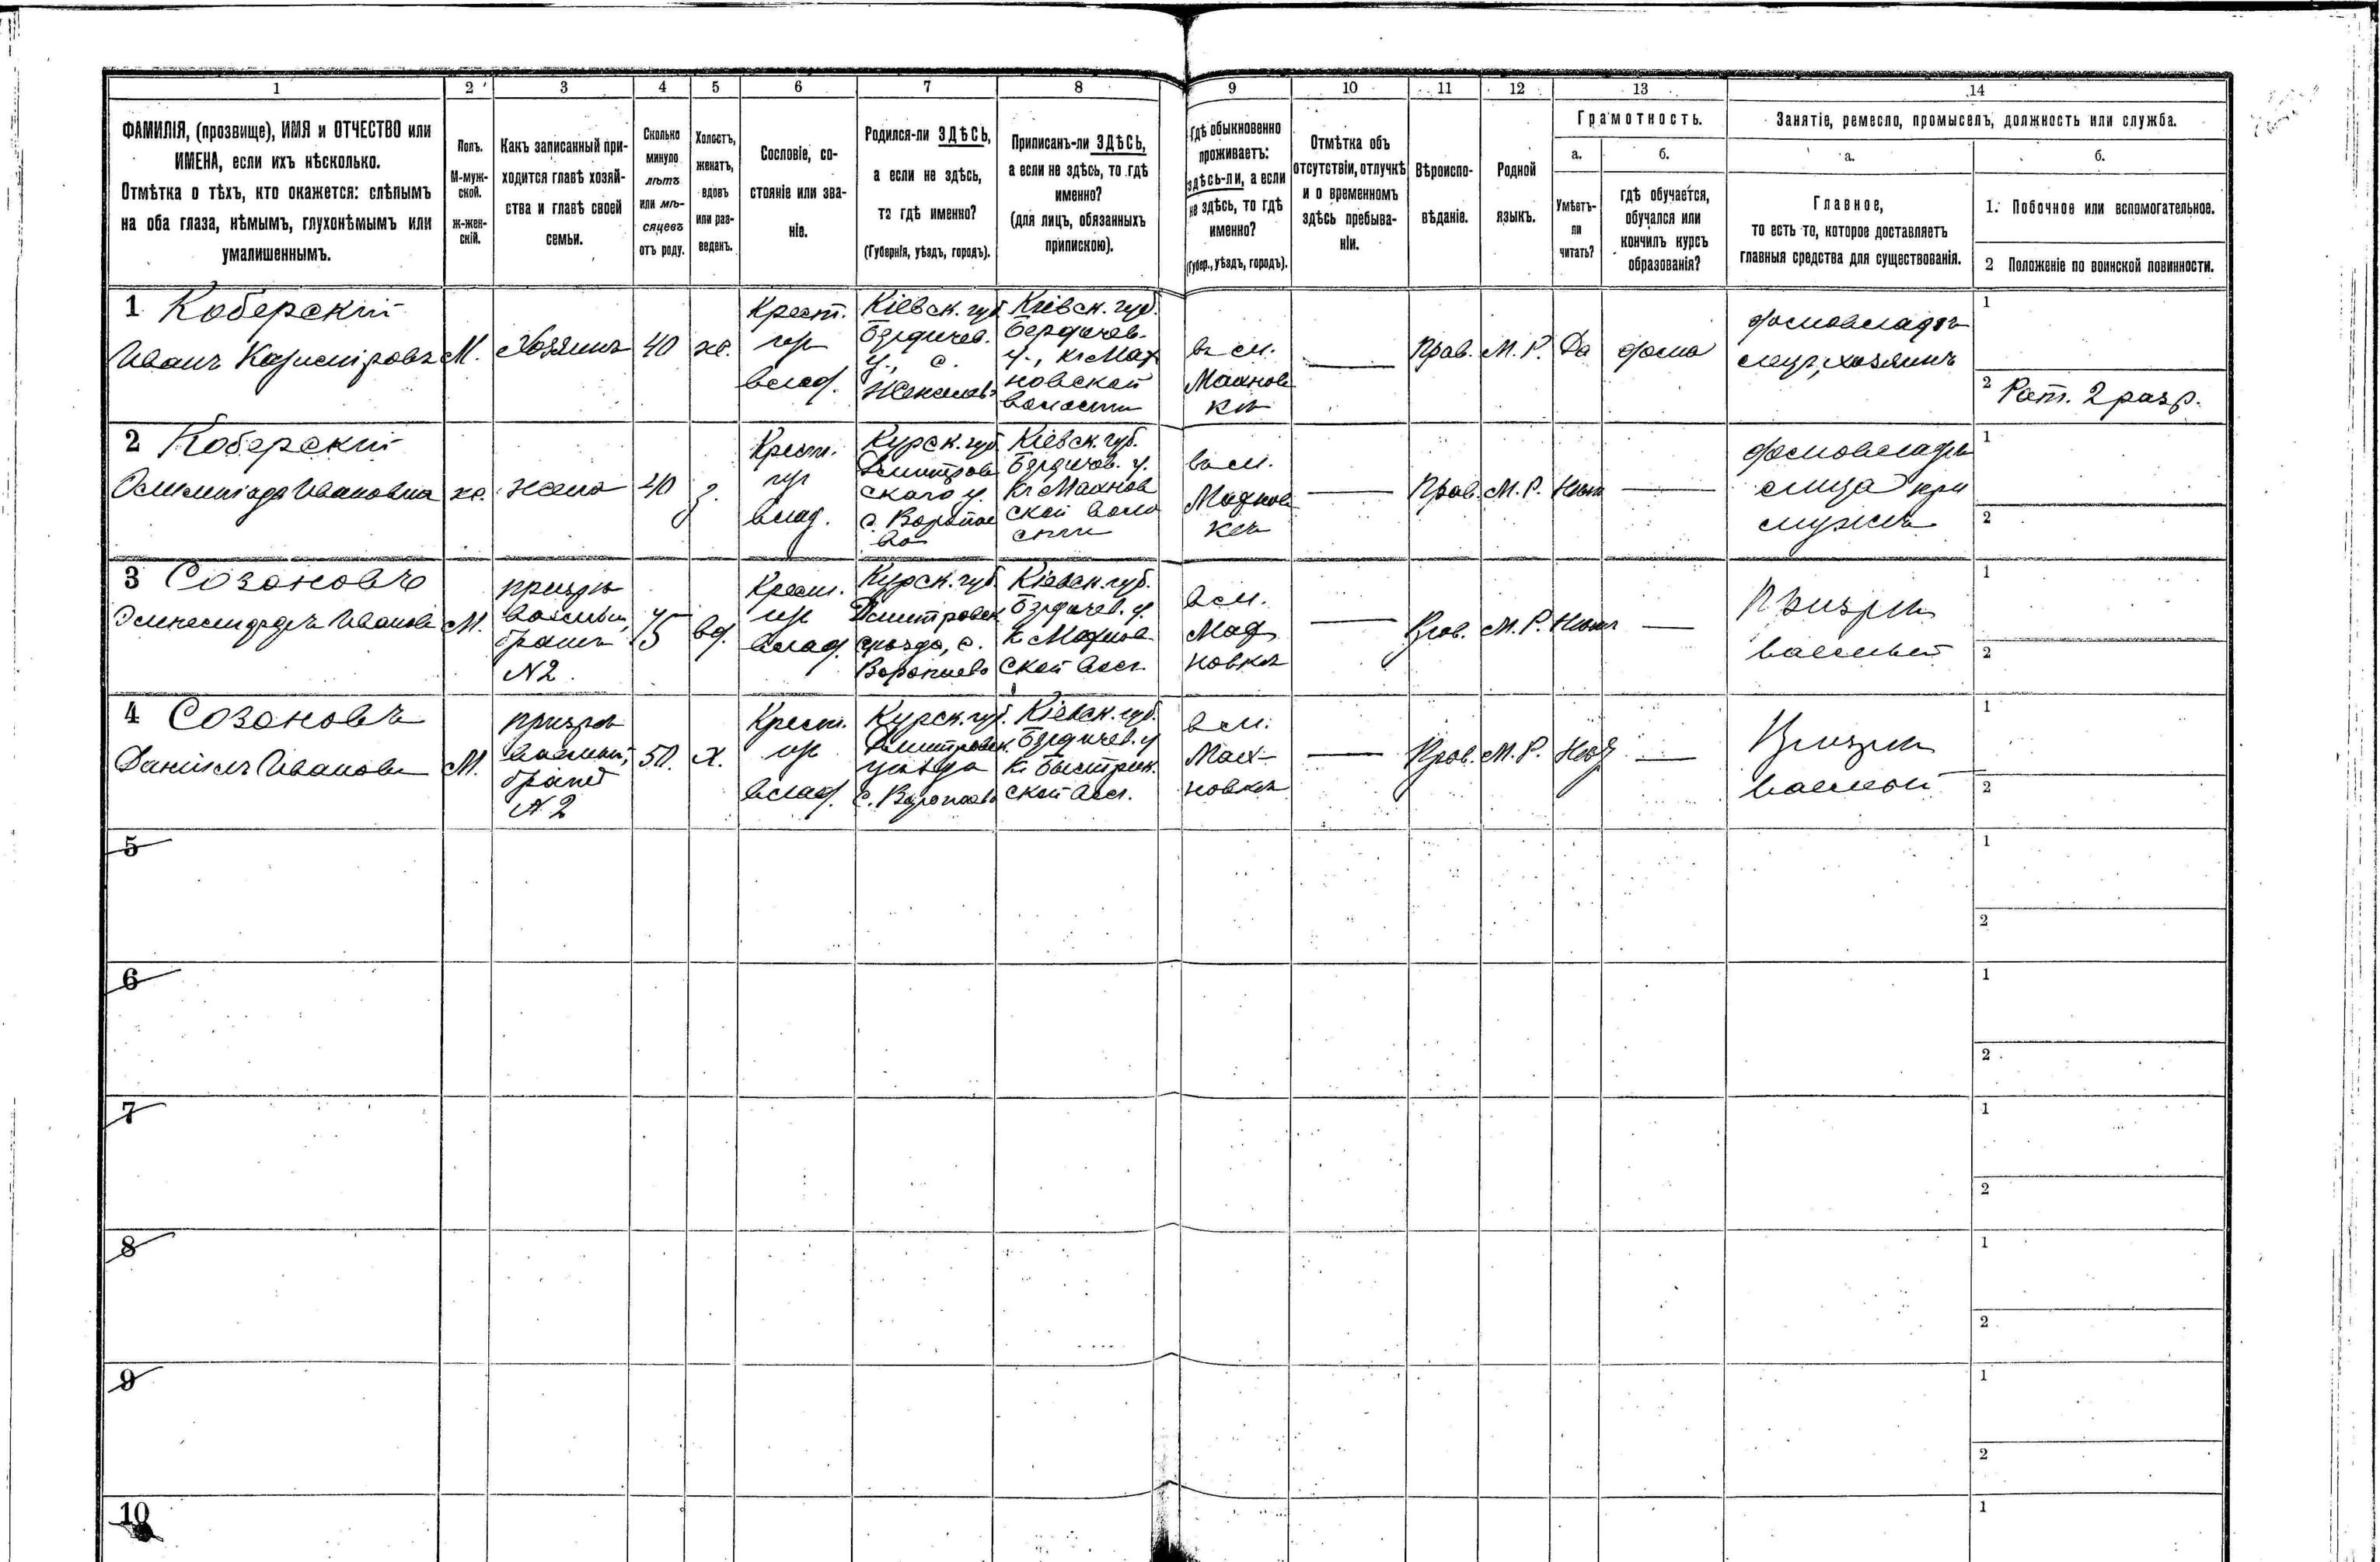 1 2 3 4 5 6 7 8 9 10 11 12 13 14
ФАМИЛІЯ, (прозвище), ИМЯ и ОТЧЕСТВО или
ИМЕНА, если ихъ нѣсколько.
Отмѣтка о тѣхъ, кто окажется: слѣпымъ
на оба глаза, нѣмымъ, глухонѣмымъ или
умалишеннымъ.
Полъ.
М-муж-
ской.
ж-жен-
скій.
Какъ записанный при-
ходится главѣ хозяй-
ства и главѣ своей
семьи.
Сколько
минуло
лѣтъ
или мѣ-
сяцевъ
отъ роду.
Холостъ,
женатъ,
вдовъ
или раз-
веденъ.
Сословіе, со-
стояніе или зва-
ніе.
Родился-ли ЗДѢСЬ,
а если не здѣсь,
то гдѣ именно?
(Губернія, уѣздъ, городъ).
Приписанъ-ли ЗДѢСЬ,
а если не здѣсь, то гдѣ
именно?
(для лицъ, обязанныхъ
припискою).
Гдѣ обыкновенно
проживаетъ:
здѣсь-ли, а если
не здѣсь, то гдѣ
именно?
(Губер., уѣздъ, городъ).
Отмѣтка объ
отсутствіи, отлучкѣ
и о временномъ
здѣсь пребыва-
ніи.
Вѣроиспо-
вѣданіе.
Родной
языкъ.
Грамотность.
а.
Умѣетъ-
ли
читать?
б.
гдѣ обучается,
обучался или
кончилъ курсъ
образованія?
Занятіе, ремесло, промыселъ, должность или служба.
а.
Главное,
то есть то, которое доставляетъ
главныя средства для существованія.
б.
1. Побочное или вспомогательное.
2 Положеніе по воинской повинности.
1 Коберскій
Иванъ
М.
Хозяинъ
40
ж.
Крест.
влад.
Кіевск. губ.
Бердичев.
у., с.
Кіевск. губ.
Бердичев.
у., къ Мах
новской
волости
въ м.
Махнов
кѣ
Прав.
М. Р.
Да
дома
хозяинъ
1
2 Рат. 2 разр.
2 Коберскій
Ивановна
ж.
жена
40
з.
Крест.
влад.
Курск. губ.
Дмитров
скаго у.
с.
Кіевск. губ.
Бердичев. у.
къ Махнов
ской воло
сти
въ м.
Махнов
кѣ
Прав.
М. Р.
Нѣт
при
мужѣ
1
2
3 Созоновъ
Иванов
М.
призрѣ
ваемый,
братъ
N2.
75
вд.
Крест.
влад.
Курск. губ.
Дмитровск
уѣзда, с.
Кіевск. губ.
Бердичев. у.
к Махнов
ской вол.
в м.
Мах
новкѣ
Прав.
М. Р.
Нѣт
Призрѣ
ваемый
1
2
4 Созоновъ
Даніилъ Иванов
М.
призрѣ
ваемый,
братъ
N 2
50.
х.
Крест.
влад.
Курск. губ.
Дмитровск.
уѣзда
с.
Кіевск. губ.
Бердичев. у
к Быстрик.
ской вол.
в м.
Мах-
новкѣ
Прав.
М. Р.
Нѣт
Призрѣ
ваемый
1
2
5
1
2
6
1
2
7
1
2
8
1
2
9
1
2
10
1